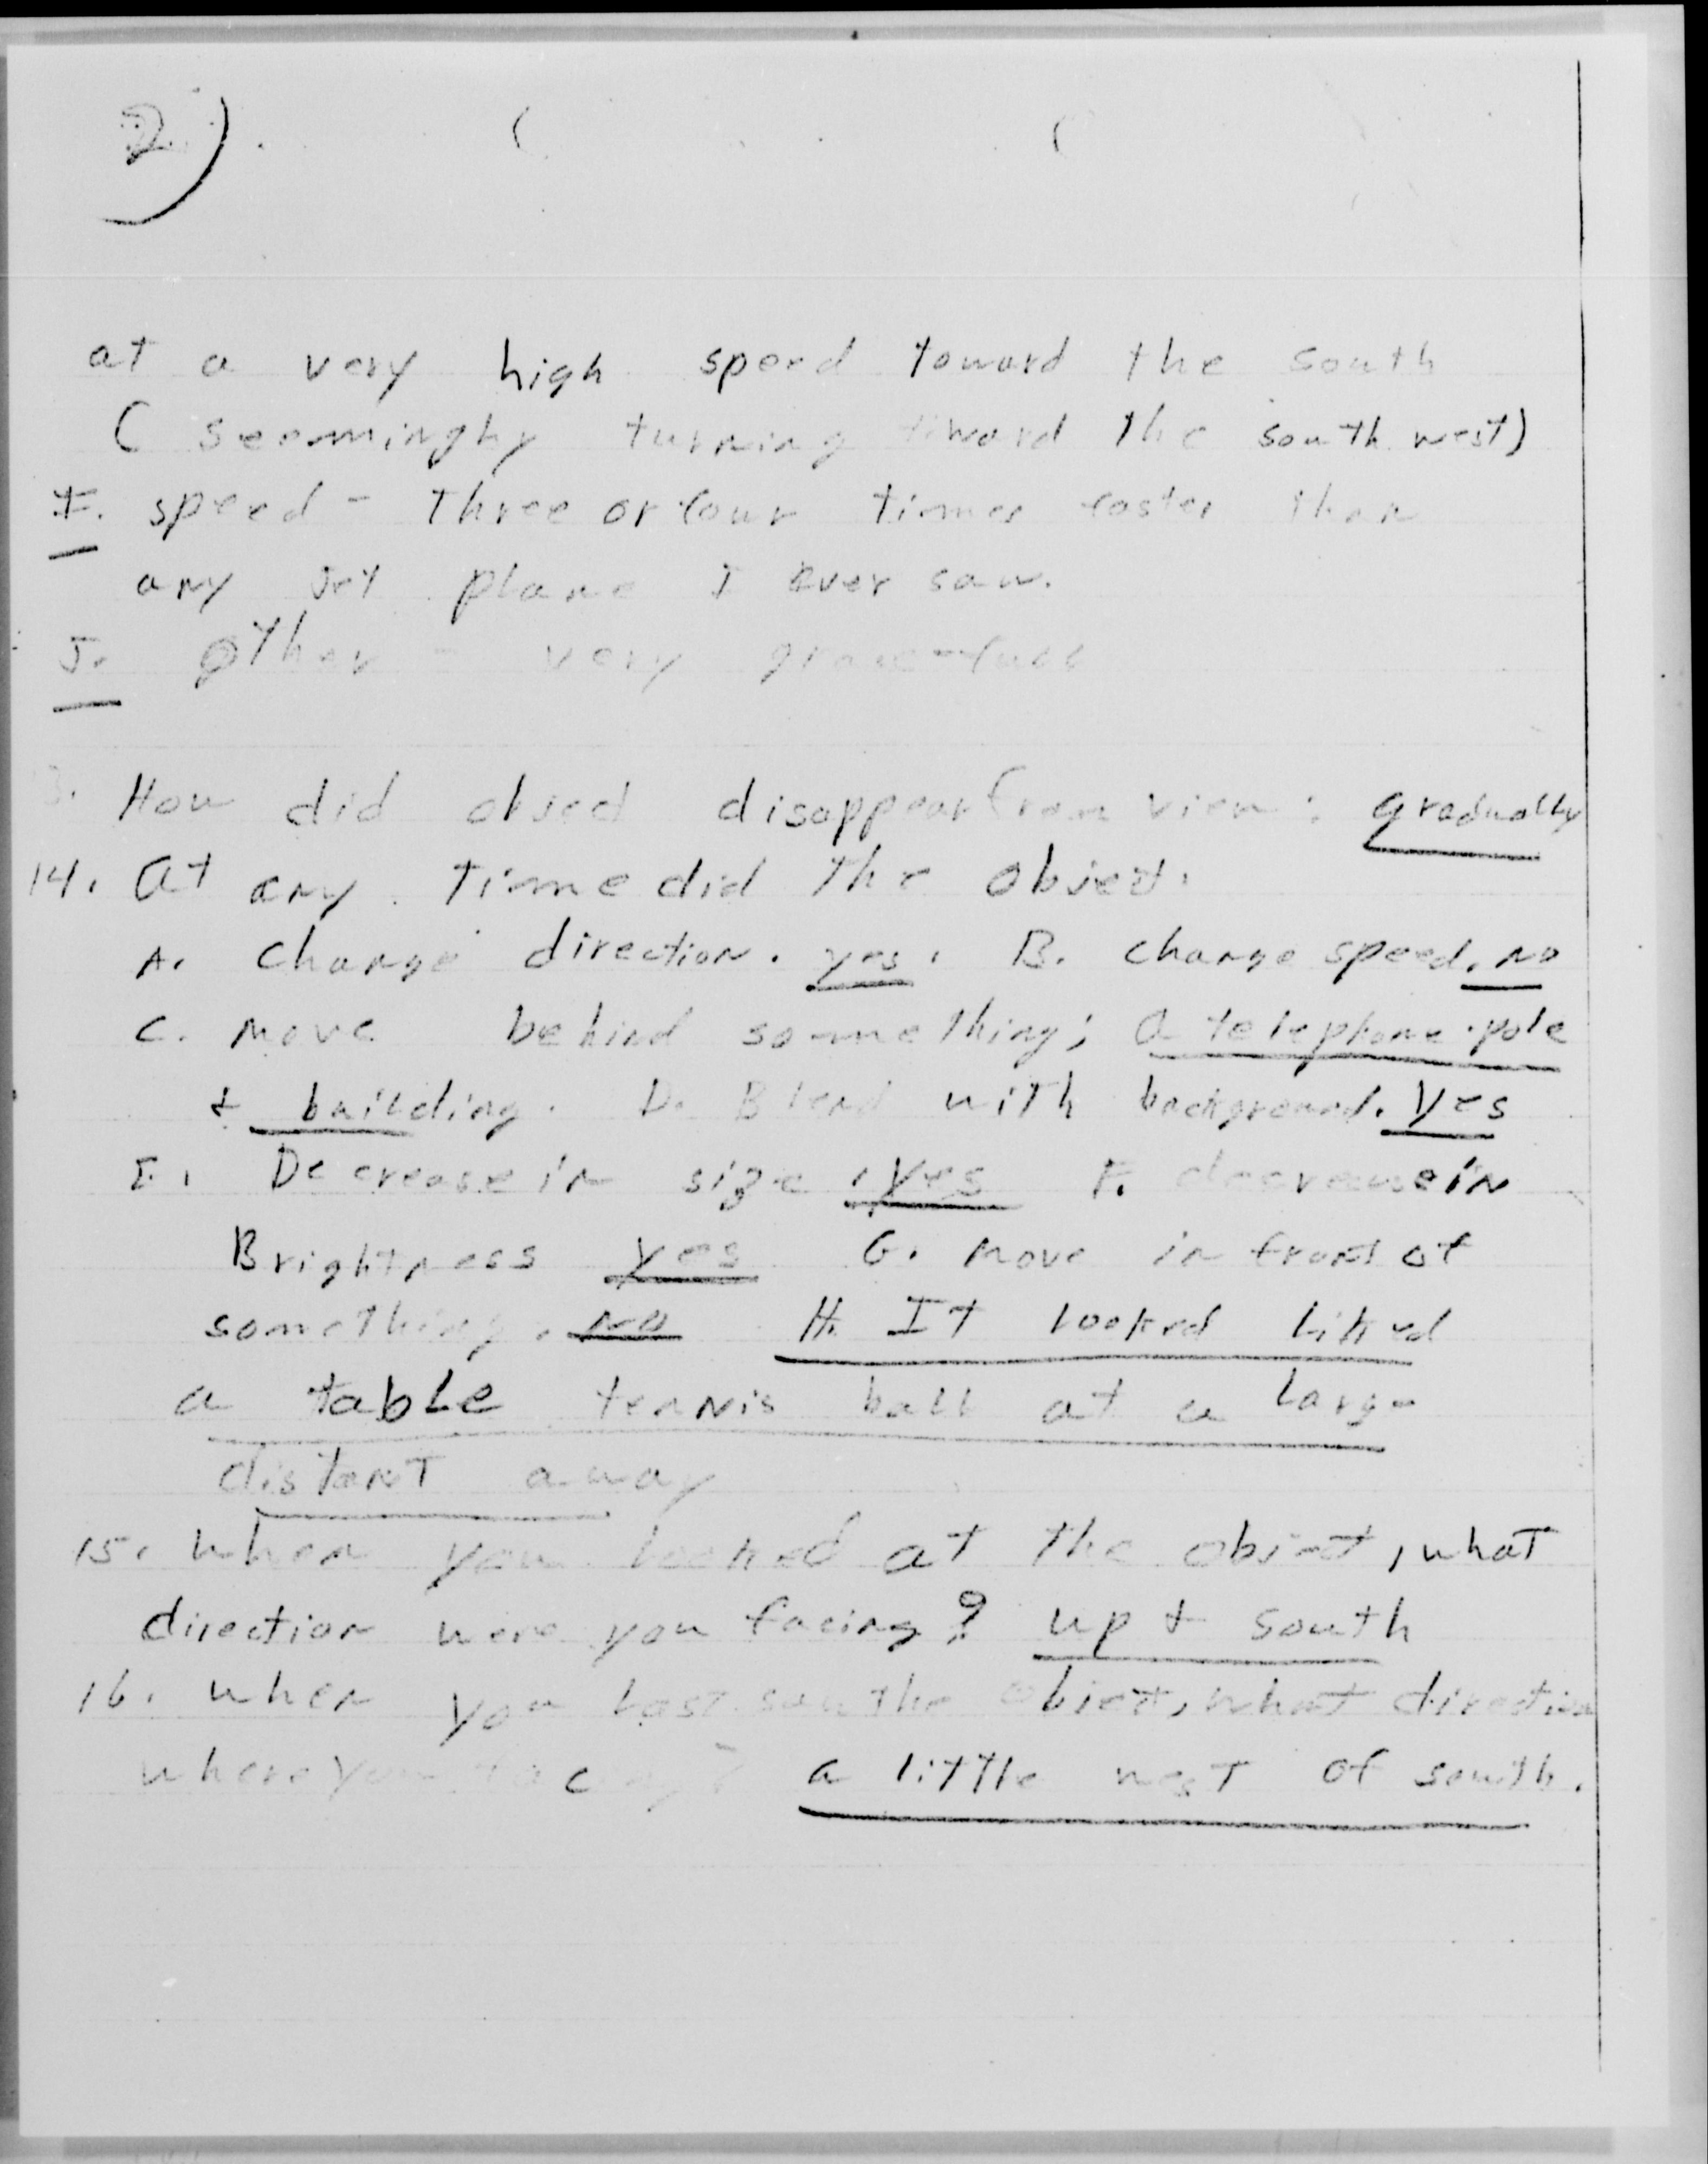 2)
at a very high speed toward the south
( seemingly turning toward the south west)
I. speed - three or four times faster than
any jet plane I ever saw.
J. other - very gracefull
3. How did object disappear from view: gradually
14. At any time did the object.
A. Change direction. yes. B. change speed. no
C. Move behind something; a telephone pole
+ building. D. Blend with background. yes
E. Decrease in size. yes F. decrease in
Brightness yes G. Move in front of
something. no H. It looked liked
a table tennis ball at a large
distant away
15. When you looked at the object, what
direction were you facing? up + south
16. when you last saw the object, what direction
where you facing? a little west of south.